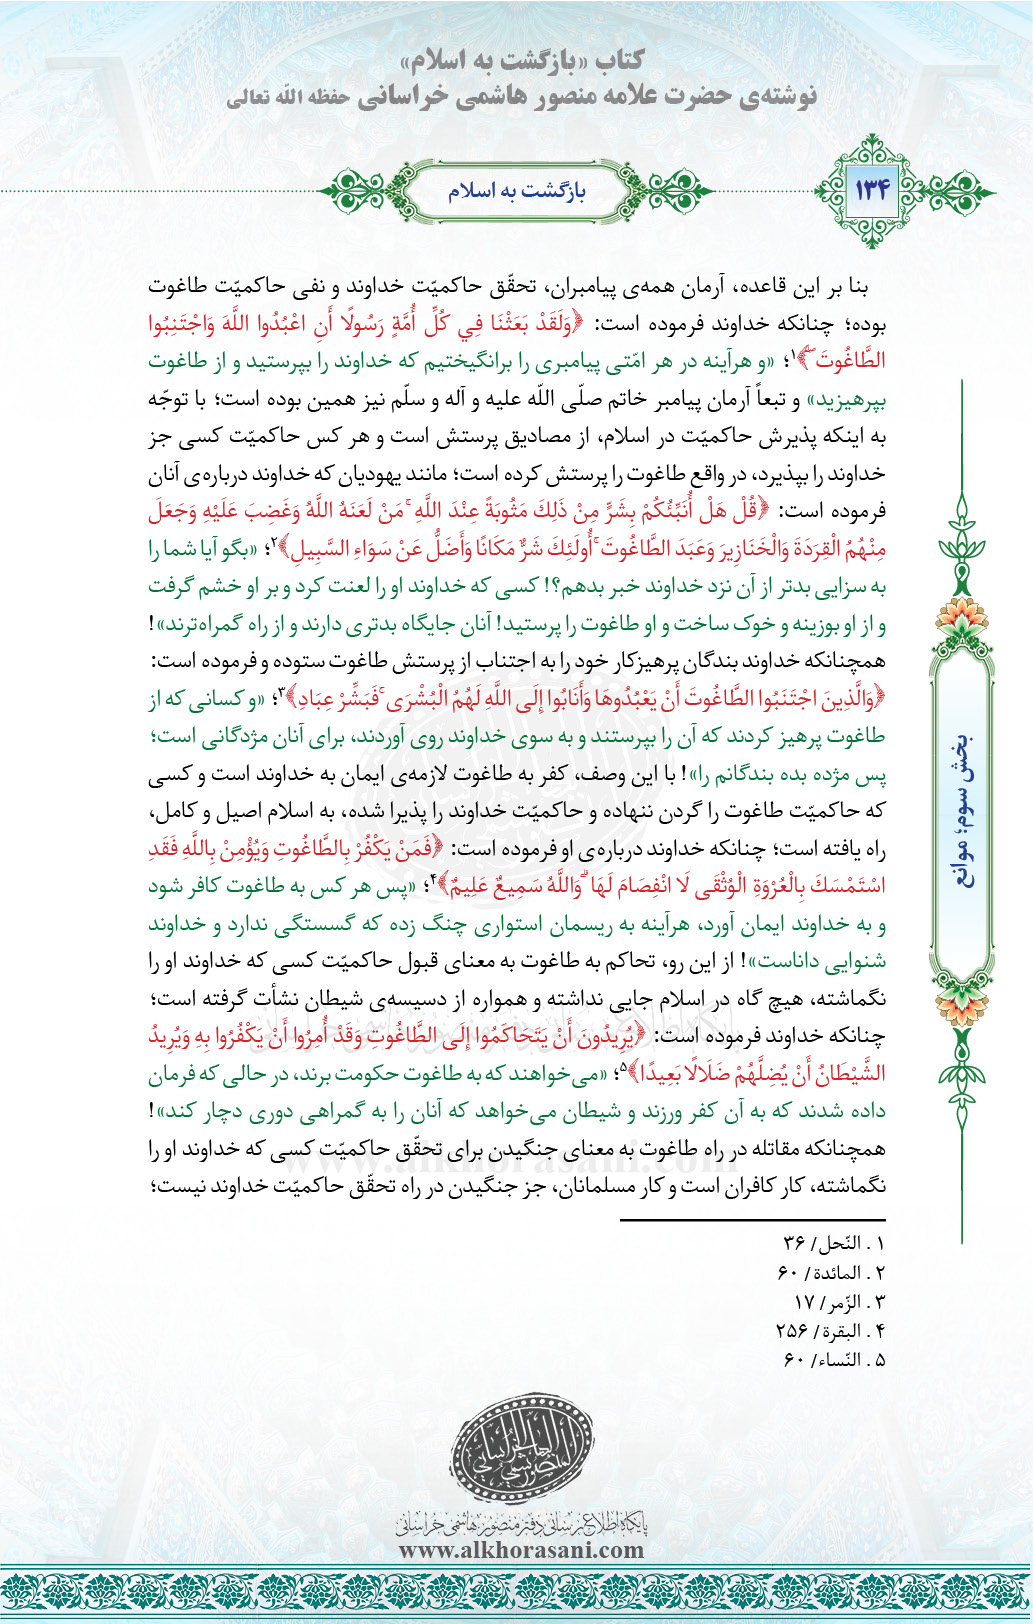 کتاب «بازگشت به اسلام»
نوشته‌ی حضرت علامه منصور هاشمی خراسانی حفظه الله تعالی
۱۳۴
بازگشت به اسلام
بنا بر این قاعده، آرمان همه‌ی پیامبران، تحقّق حاکمیّت خداوند و نفی حاکمیّت طاغوت
بوده؛ چنانکه خداوند فرموده است: ﴿وَلَقَدْ بَعَثْنَا فِي كُلِّ أُمَّةٍ رَسُولًا أَنِ اعْبُدُوا اللَّهَ وَاجْتَنِبُوا
الطَّاغُوتَ ۖ﴾۱؛ «و هرآینه در هر امّتی پیامبری را برانگیختیم که خداوند را بپرستید و از طاغوت
بپرهیزید» و تبعاً آرمان پیامبر خاتم صلّی اللّه علیه و آله و سلّم نیز همین بوده است؛ با توجّه
به اینکه پذیرش حاکمیّت در اسلام، از مصادیق پرستش است و هر کس حاکمیّت کسی جز
خداوند را بپذیرد، در واقع طاغوت را پرستش کرده است؛ مانند یهودیان که خداوند درباره‌ی آنان
فرموده است: ﴿قُلْ هَلْ أُنَبِّئُكُمْ بِشَرٍّ مِنْ ذَلِكَ مَثُوبَةً عِنْدَ اللَّهِ ۚ مَنْ لَعَنَهُ اللَّهُ وَغَضِبَ عَلَيْهِ وَجَعَلَ
مِنْهُمُ الْقِرَدَةَ وَالْخَنَازِيرَ وَعَبَدَ الطَّاغُوتَ ۚ أُولَئِكَ شَرٌّ مَكَانًا وَأَضَلُّ عَنْ سَوَاءِ السَّبِيلِ﴾۲؛ «بگو آیا شما را
به سزایی بدتر از آن نزد خداوند خبر بدهم؟! کسی که خداوند او را لعنت کرد و بر او خشم گرفت
و از او بوزینه و خوک ساخت و او طاغوت را پرستید! آنان جایگاه بدتری دارند و از راه گمراه‌ترند»!
همچنانکه خداوند بندگان پرهیزکار خود را به اجتناب از پرستش طاغوت ستوده و فرموده است:
﴿وَالَّذِينَ اجْتَنَبُوا الطَّاغُوتَ أَنْ يَعْبُدُوهَا وَأَنَابُوا إِلَى اللَّهِ لَهُمُ الْبُشْرَى ۚ فَبَشِّرْ عِبَادِ﴾۳؛ «و کسانی که از
طاغوت پرهیز کردند که آن را بپرستند و به سوی خداوند روی آوردند، برای آنان مژدگانی است؛
پس مژده بده بندگانم را»! با این وصف، کفر به طاغوت لازمه‌ی ایمان به خداوند است و کسی
که حاکمیّت طاغوت را گردن ننهاده و حاکمیّت خداوند را پذیرا شده، به اسلام اصیل و کامل،
راه یافته است؛ چنانکه خداوند درباره‌ی او فرموده است: ﴿فَمَنْ يَكْفُرْ بِالطَّاغُوتِ وَيُؤْمِنْ بِاللَّهِ فَقَدِ
اسْتَمْسَكَ بِالْعُرْوَةِ الْوُثْقَى لَا انْفِصَامَ لَهَا ۗ وَاللَّهُ سَمِيعٌ عَلِيمٌ﴾۴؛ «پس هر کس به طاغوت کافر شود
و به خداوند ایمان آورد، هرآینه به ریسمان استواری چنگ زده که گسستگی ندارد و خداوند
شنوایی داناست»! از این رو، تحاکم به طاغوت به معنای قبول حاکمیّت کسی که خداوند او را
نگماشته، هیچ گاه در اسلام جایی نداشته و همواره از دسیسه‌ی شیطان نشأت گرفته است؛
چنانکه خداوند فرموده است: ﴿يُرِيدُونَ أَنْ يَتَحَاكَمُوا إِلَى الطَّاغُوتِ وَقَدْ أُمِرُوا أَنْ يَكْفُرُوا بِهِ وَيُرِيدُ
الشَّيْطَانُ أَنْ يُضِلَّهُمْ ضَلَالًا بَعِيدًا﴾۵؛ «می‌خواهند که به طاغوت حکومت برند، در حالی که فرمان
داده شدند که به آن کفر ورزند و شیطان می‌خواهد که آنان را به گمراهی دوری دچار کند»!
همچنانکه مقاتله در راه طاغوت به معنای جنگیدن برای تحقّق حاکمیّت کسی که خداوند او را
نگماشته، کار کافران است و کار مسلمانان، جز جنگیدن در راه تحقّق حاکمیّت خداوند نیست؛
۱ . النّحل/ ۳۶
۲ . المائدة/ ۶۰
۳ . الزّمر/ ۱۷
۴ . البقرة/ ۲۵۶
۵ . النّساء/ ۶۰
بخش سوم؛ موانع
المنصور الهاشمي الخراساني
پایگاه اطلاع‌رسانی دفتر منصور هاشمی خراسانی
www.alkhorasani.com